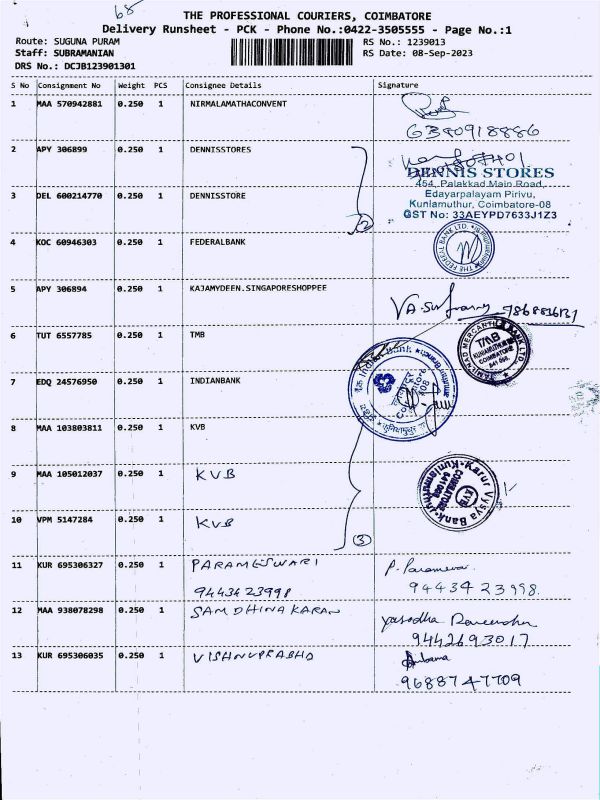 68
THE PROFESSIONAL COURIERS, COIMBATORE
Delivery Runsheet - PCK - Phone No.:0422-3505555 - Page No.:1
Route: SUGUNA PURAM RS No.: 1239013
Staff: SUBRAMANIAN RS Date: 08-Sep-2023
DRS No.: DCJB123901301
S No Consignment No Weight PCS Consignee Details Signature
1 MAA 570942881 0.250 1 NIRMALAMATHACONVENT
6380918886
2 APY 306899 0.250 1 DENNISSTORES
DENNIS STORES
454, Palakkad Main Road,
3 DEL 600214770 0.250 1 DENNISSTORE
Edayarpalayam Pirivu,
Kuniamuthur, Coimbatore-08
GST No: 33AEYPD7633J1Z3
2
4 KOC 60946303 0.250 1 FEDERALBANK
THE FEDERAL BANK LTD.
5 APY 306894 0.250 1 KAJAMYDEEN.SINGAPORESHOPPEE
6 TUT 6557785 0.250 1 TMB
TAMILNAD MERCANTILE BANK LTD.
TMB
KUNIAMUTHUR
COIMBATORE
641 008.
7 EDQ 24576950 0.250 1 INDIANBANK
Indian Bank
Coimbatore
8 MAA 103803811 0.250 1 KVB
9 MAA 105012037 0.250 1 KVB
Karur Vysya Bank-Kuniamuthur
KVB
COIMBATORE
641008
10 VPM 5147284 0.250 1 KVB
3
11 KUR 695306327 0.250 1 PARAMESWARI P. Parameswa.
9443423998 9443423998.
12 MAA 938078298 0.250 1 SAMDHINAKARAN
yasodha
9442693017
13 KUR 695306035 0.250 1 VISHNUPRABHA
9688747709